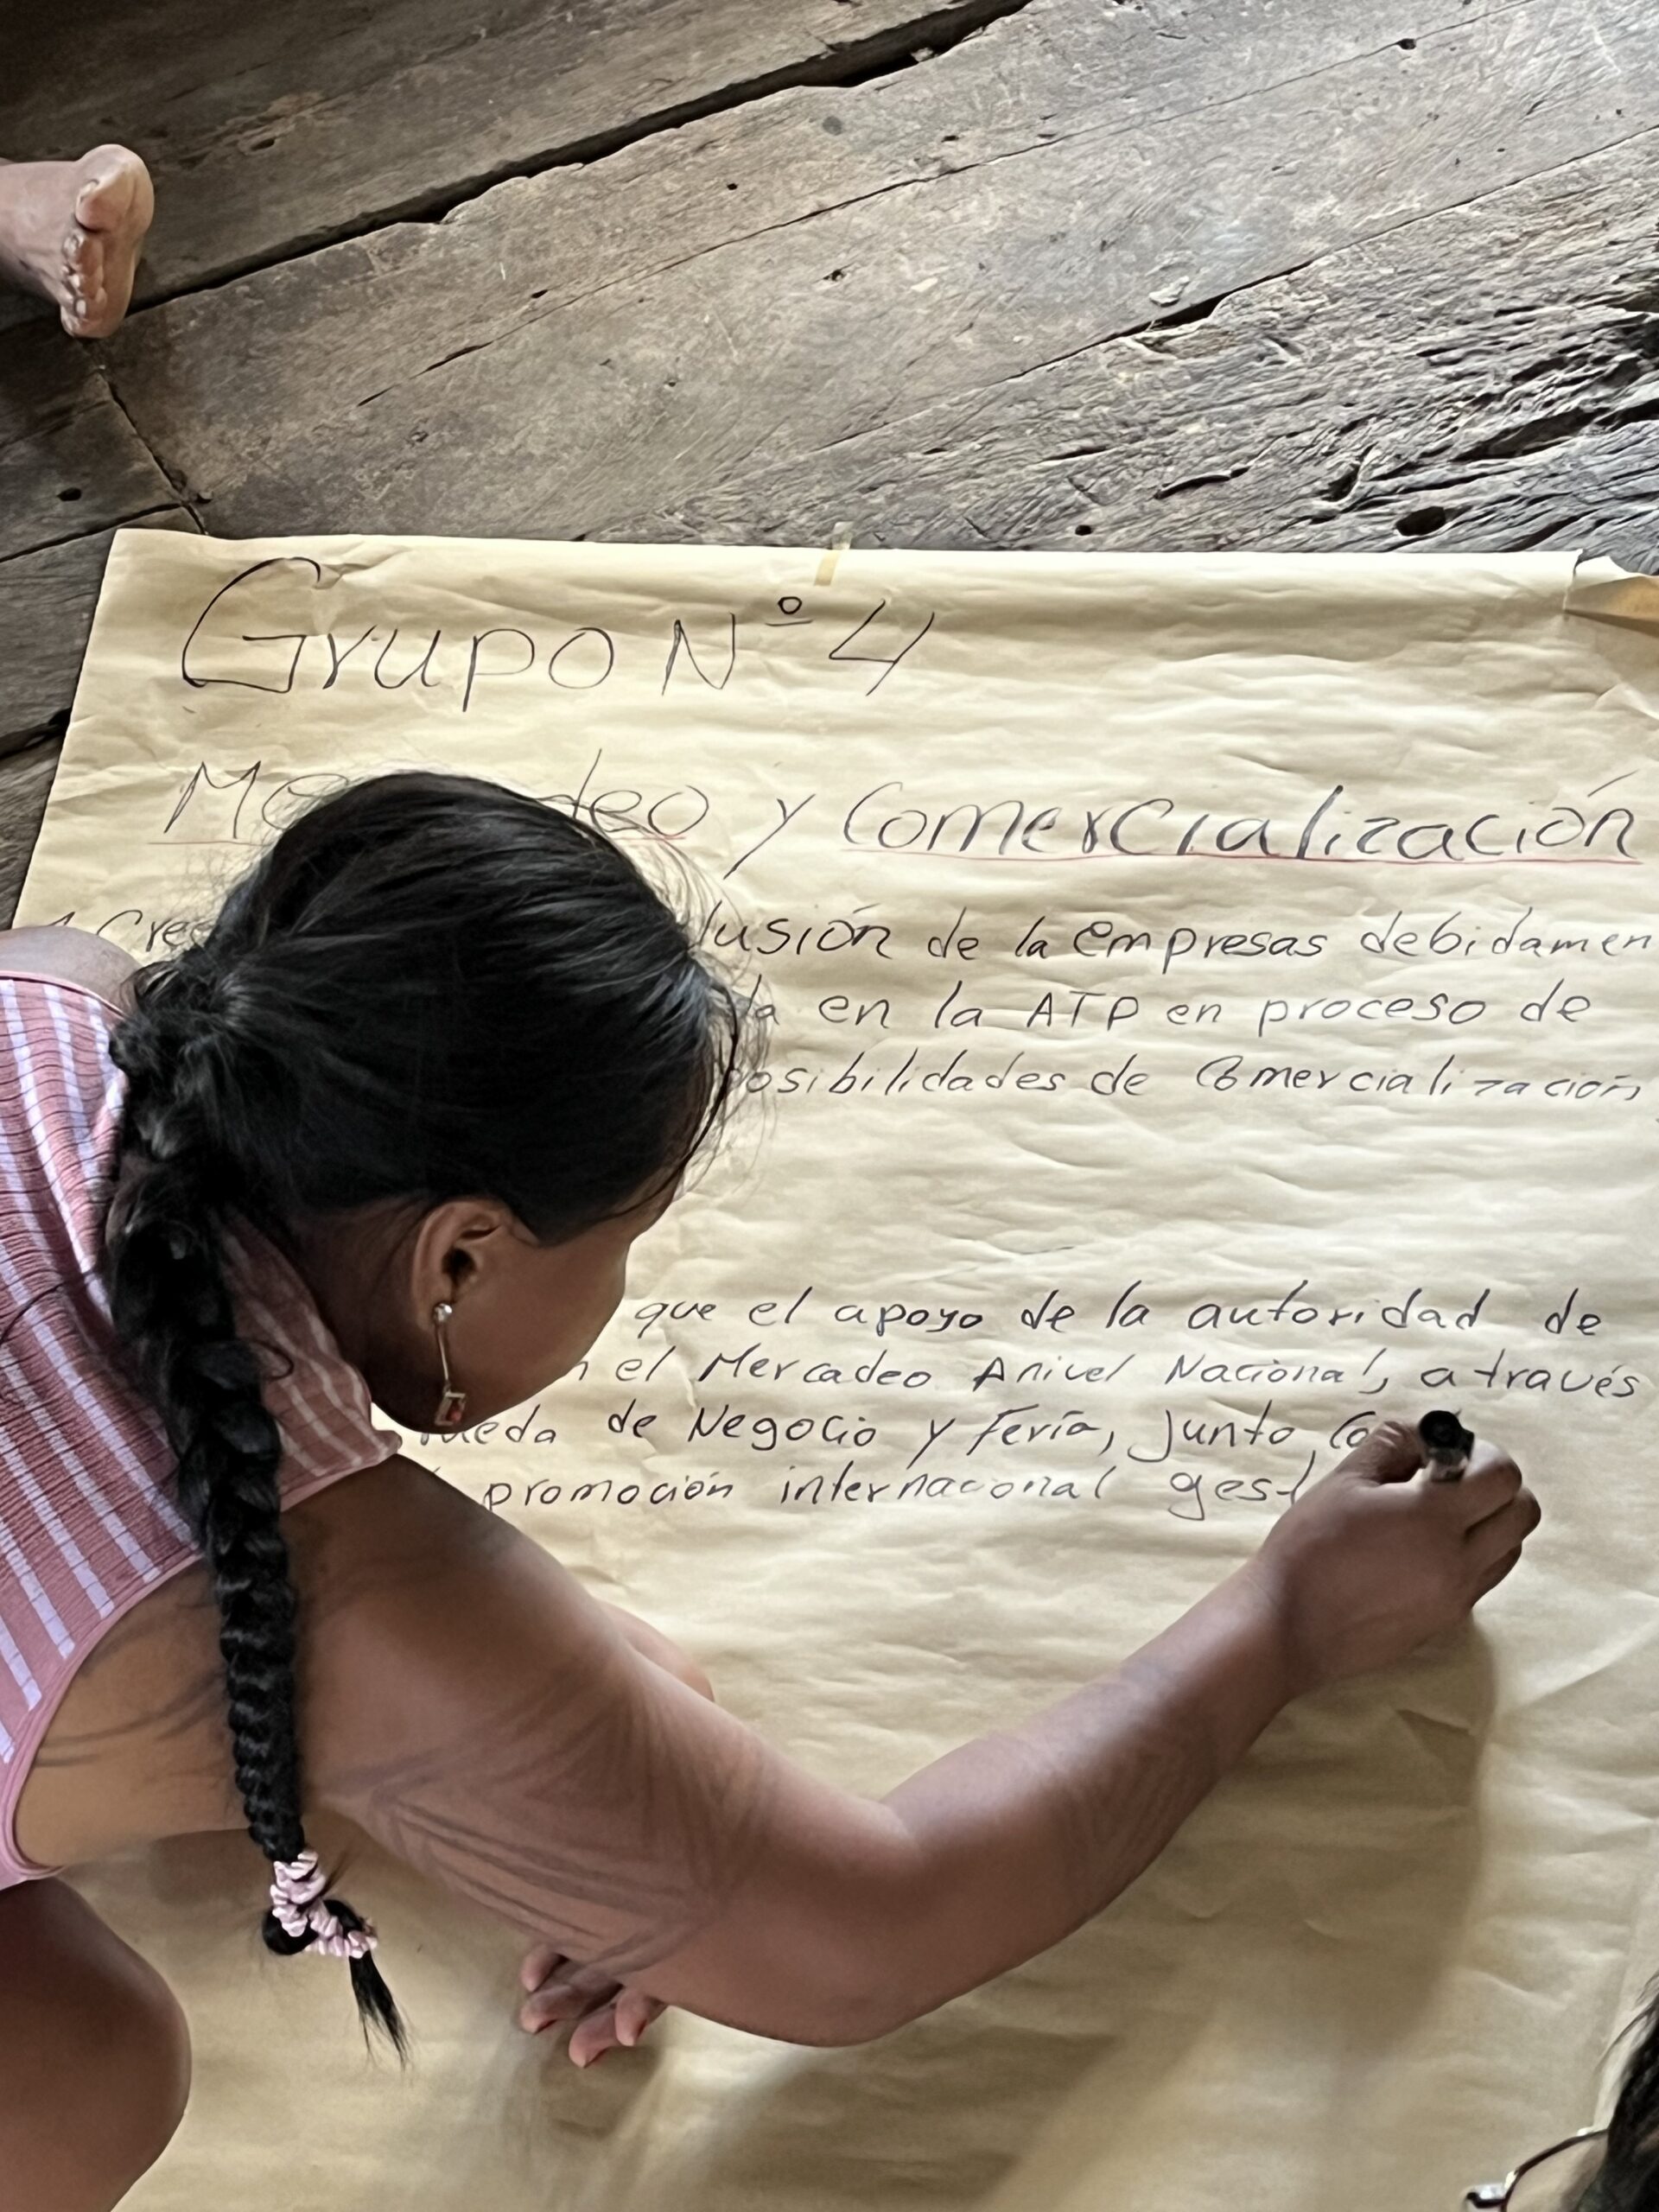 Grupo Nº 4
y Comercialización
de la empresas debidamen
en la ATP en proceso de
posibilidades de Comercialización,
que el apoyo de la autoridad de
el Mercadeo Anivel Nacional, através
de Negocio y Feria, junto
promoción internacional